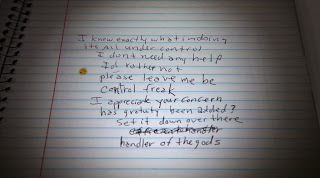 I knew exactly what im doing
its all under control
I dont need any help
I'd rather not
please leave me be
control freak
I appreciate your concern
has gratuity been added?
set it down over there
handler of the gods